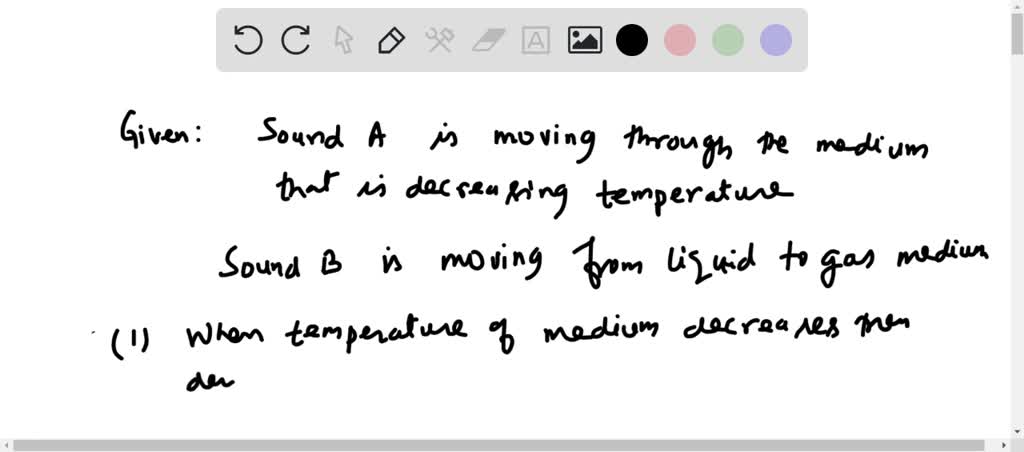 A
Given: Sound A is moving through the medium
that is decreasing temperature
Sound B is moving from liquid to gas medium
(1) When temperature of medium decreases then
den